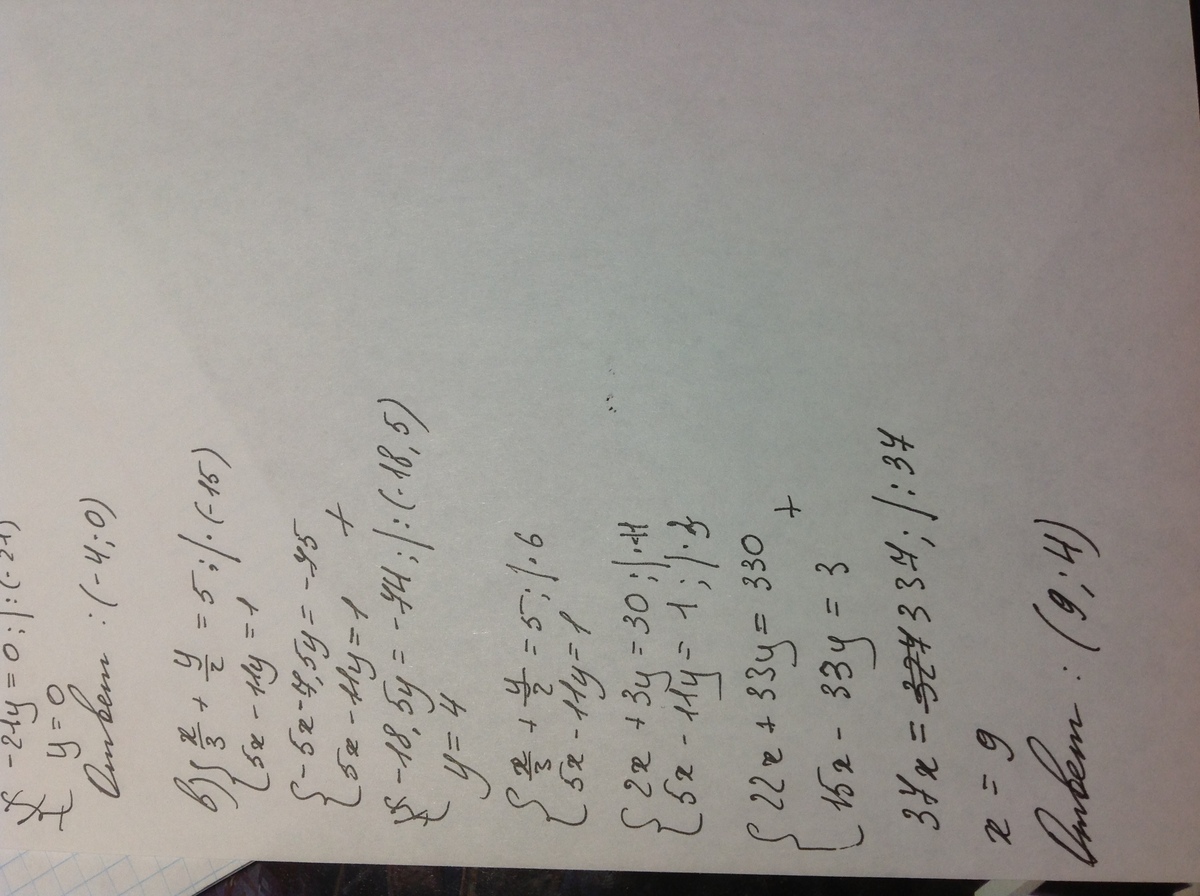 -21y = 0; |: (-21)
y = 0
Ответ: (-4; 0)
в) { x/3 + y/2 = 5; | · (-15)
5x - 11y = 1
{ -5x - 7,5y = -75
5x - 11y = 1 +
{ -18,5y = -74; |: (-18,5)
y = 4
{ x/3 + y/2 = 5; | · 6
5x - 11y = 1
{ 2x + 3y = 30; | · 11
5x - 11y = 1; | · 3
{ 22x + 33y = 330 +
15x - 33y = 3
37x = 327 333; |: 37
x = 9
Ответ: (9; 4)